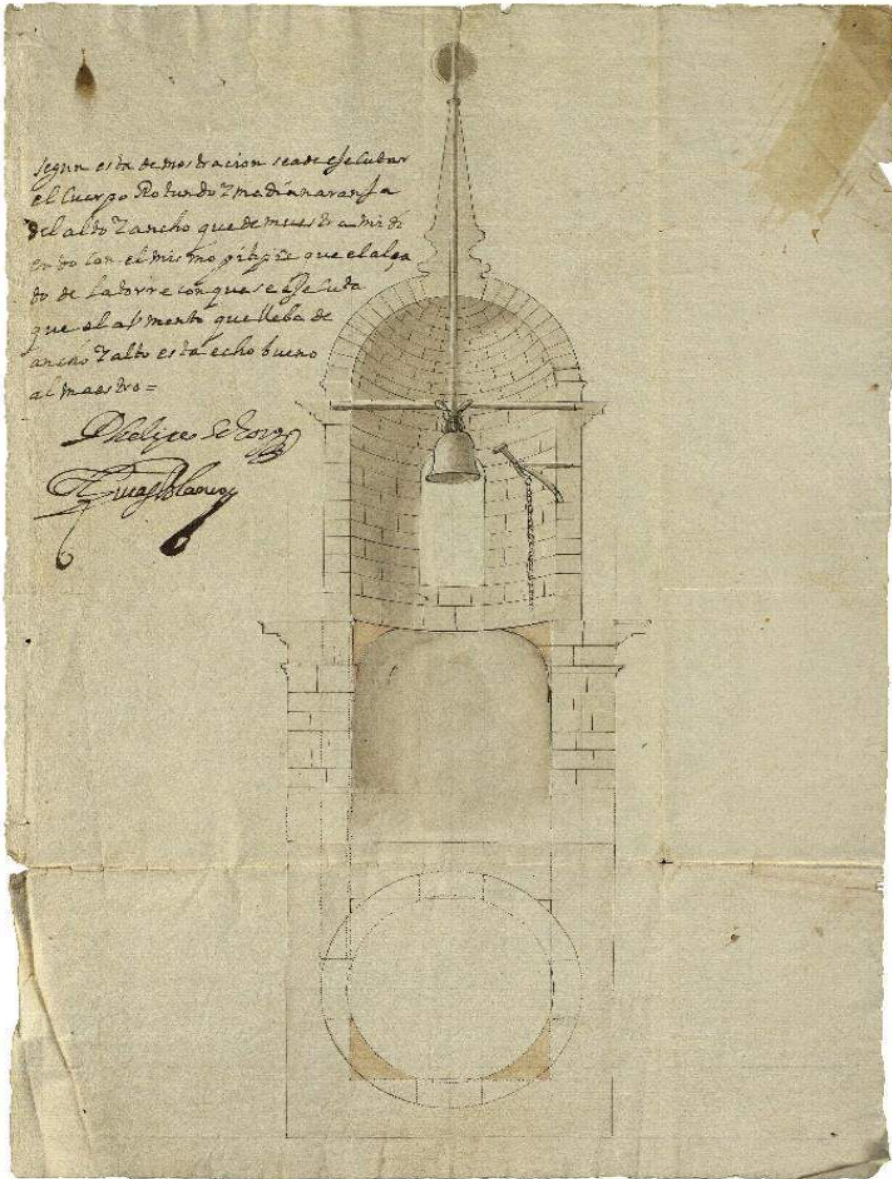 segun esta demostracion seade ejecutar
el Cuerpo Rotundo Y media naranja
del alto Y ancho que demuestra midi
endo con el mismo pitipie que el alça
do de la torre conque se ejecuta
que el aumento que lleba de
ancho Y alto esta echo bueno
al maestro =
Phelipe
Lucas Blanco